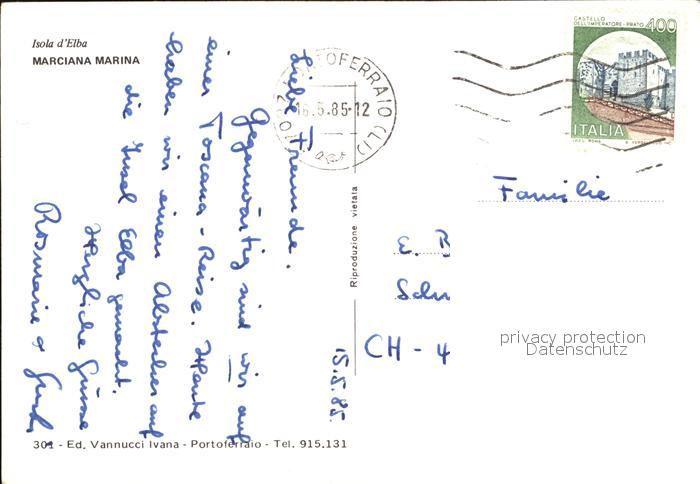 Isola d'Elba
MARCIANA MARINA
Liebe Freunde.
Gegenwärtig sind wir auf
einer Toscana-Reise. Heute
haben wir einen Abstecher auf
die Insel Elba gemacht.
Herzliche Grüsse
Rosmarie &
15.5.85.
PORTOFERRAIO (LI)
16.5.85-12
Riproduzione vietata
CASTELLO
DELL'IMPERATORE-PRATO
400
ITALIA
Familie
E. B
Schu
CH - 4
privacy protection
Datenschutz
301 - Ed. Vannucci Ivana - Portoferraio - Tel. 915.131